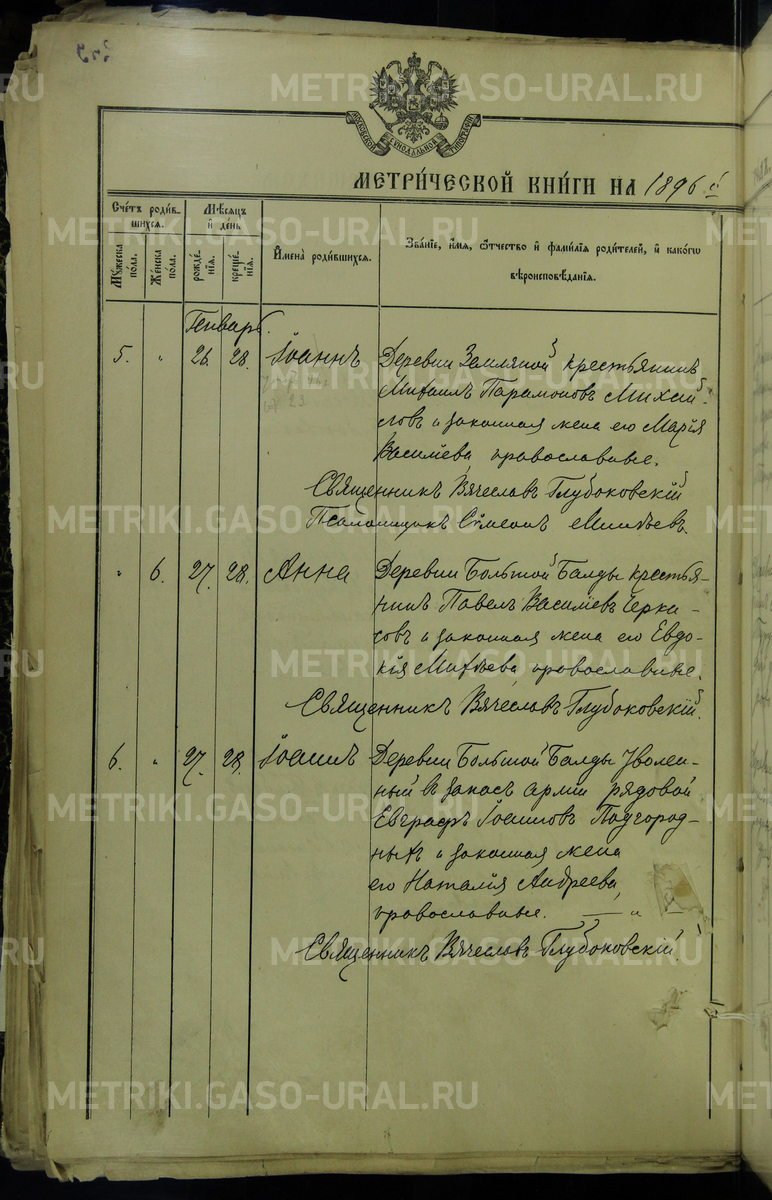 МОСКОВСКОЙ СѴНОДАЛЬНОЙ ТИПОГРАФІИ
МЕТРИ́ЧЕСКОЙ КНИ́ГИ НА 1896 й
Сче́тъ роди́вшихся.
Мѣ́сяцъ и҆ де́нь
Мꙋ́жеска по́ла.
Же́нска по́ла.
рожде́нїѧ.
креще́нїѧ.
И҆мена̀ роди́вшихся.
Зва́нїе, и҆́мя, ѻ҆́тчество и҆ фами́лїя роди́телей, и҆ како́гѡ
вѣроисповѣ́данїя.
Генварь.
5. " 26. 28. Іоаннъ Деревни Земляной крестьянинъ
Михаилъ Парамоновъ Михай-
ловъ и законная жена его Марія
Василіева православные.
Священникъ Вячеславъ Глубоковскій
Псаломщикъ Сѵмеонъ
" 6. 27. 28. Анна Деревни Большой Балды крестья-
нинъ Павелъ Василіевъ Черка-
совъ и законная жена его Евдо-
кія православные.
Священникъ Вячеславъ Глубоковскій.
6. " 27. 28. Іоаннъ Деревни Большой Балды уволен-
ный въ запасъ арміи рядовой
Евграфъ Іоанновъ Подгород-
ныхъ и законная жена
его Наталія Андреева,
православные. — " —
Священникъ Вячеславъ Глубоковскій.
METRIKI.GASO-URAL.RU